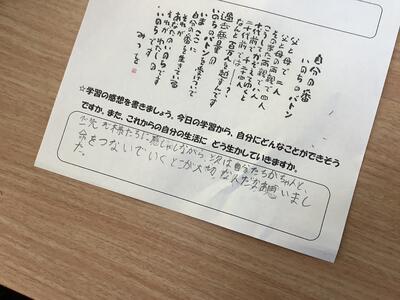 自分の番
いのちのバトン
父と母で二人
父と母の両親で四人
そのまた両親で八人
こうしてかぞえてゆくと
十代前で千二十四人
二十代前では?
なんと百万人を越すんです
過去無量の
いのちのバトンを受けついで
いまここに
自分の番を生きている
それが
あなたのいのちです
それがわたしの
いのちです
みつを
☆学習の感想を書きましょう。今日の学習から、自分にどんなことができそう
ですか。また、これからの自分の生活に どう生かしていきますか。
先祖様たちに感しゃしながら、次は自分たちがちゃんと、
命をつないでいくことが大切なんだなと思いまし
た。